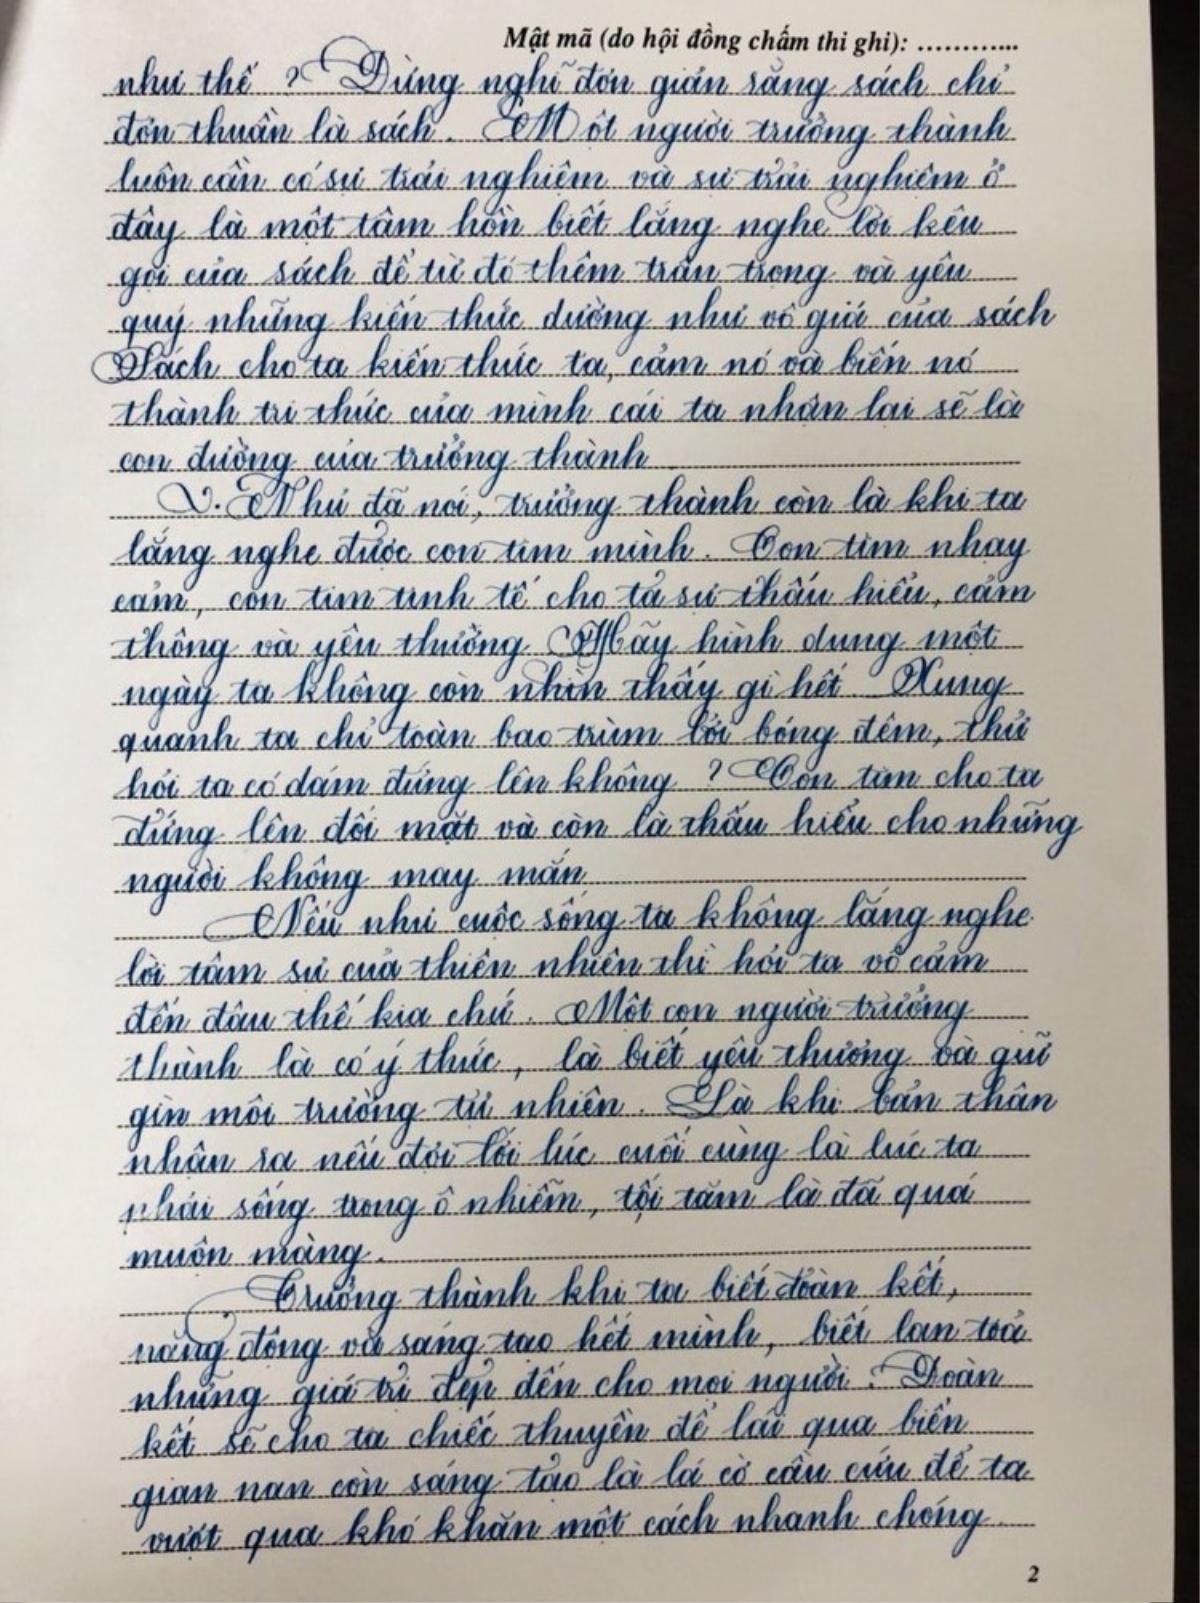 Mật mã (do hội đồng chấm thi ghi): ............
như thế ? Đừng nghĩ đơn giản rằng sách chỉ
đơn thuần là sách. Một người trưởng thành
luôn cần có sự trải nghiệm và sự trải nghiệm ở
đây là một tâm hồn biết lắng nghe lời kêu
gọi của sách để từ đó thêm trân trọng và yêu
quý những kiến thức dường như vô giá của sách
Sách cho ta kiến thức ta, cảm nó và biến nó
thành tri thức của mình cái ta nhận lại sẽ là
con đường của trưởng thành
V. Như đã nói, trưởng thành còn là khi ta
lắng nghe được con tim mình. Con tim nhạy
cảm, con tim tinh tế cho ta sự thấu hiểu, cảm
thông và yêu thương. Hãy hình dung một
ngày ta không còn nhìn thấy gì hết Xung
quanh ta chỉ toàn bao trùm bởi bóng đêm, thử
hỏi ta có dám đứng lên không ? Con tim cho ta
đứng lên đối mặt và còn là thấu hiểu cho những
người không may mắn
Nếu như cuộc sống ta không lắng nghe
lời tâm sự của thiên nhiên thì hỏi ta vô cảm
đến đâu thế kia chứ. Một con người trưởng
thành là có ý thức, là biết yêu thương và giữ
gìn môi trường tự nhiên. Là khi bản thân
nhận ra nếu đợi tới lúc cuối cùng là lúc ta
phải sống trong ô nhiễm, tội tăm là đã quá
muộn màng.
Trưởng thành khi ta biết đoàn kết,
năng động và sáng tạo hết mình, biết lan toả
những giá trị đẹp đến cho mọi người. Đoàn
kết sẽ cho ta chiếc thuyền để lái qua biển
gian nan còn sáng tạo là lá cờ cầu cứu để ta
vượt qua khó khăn một cách nhanh chóng
2